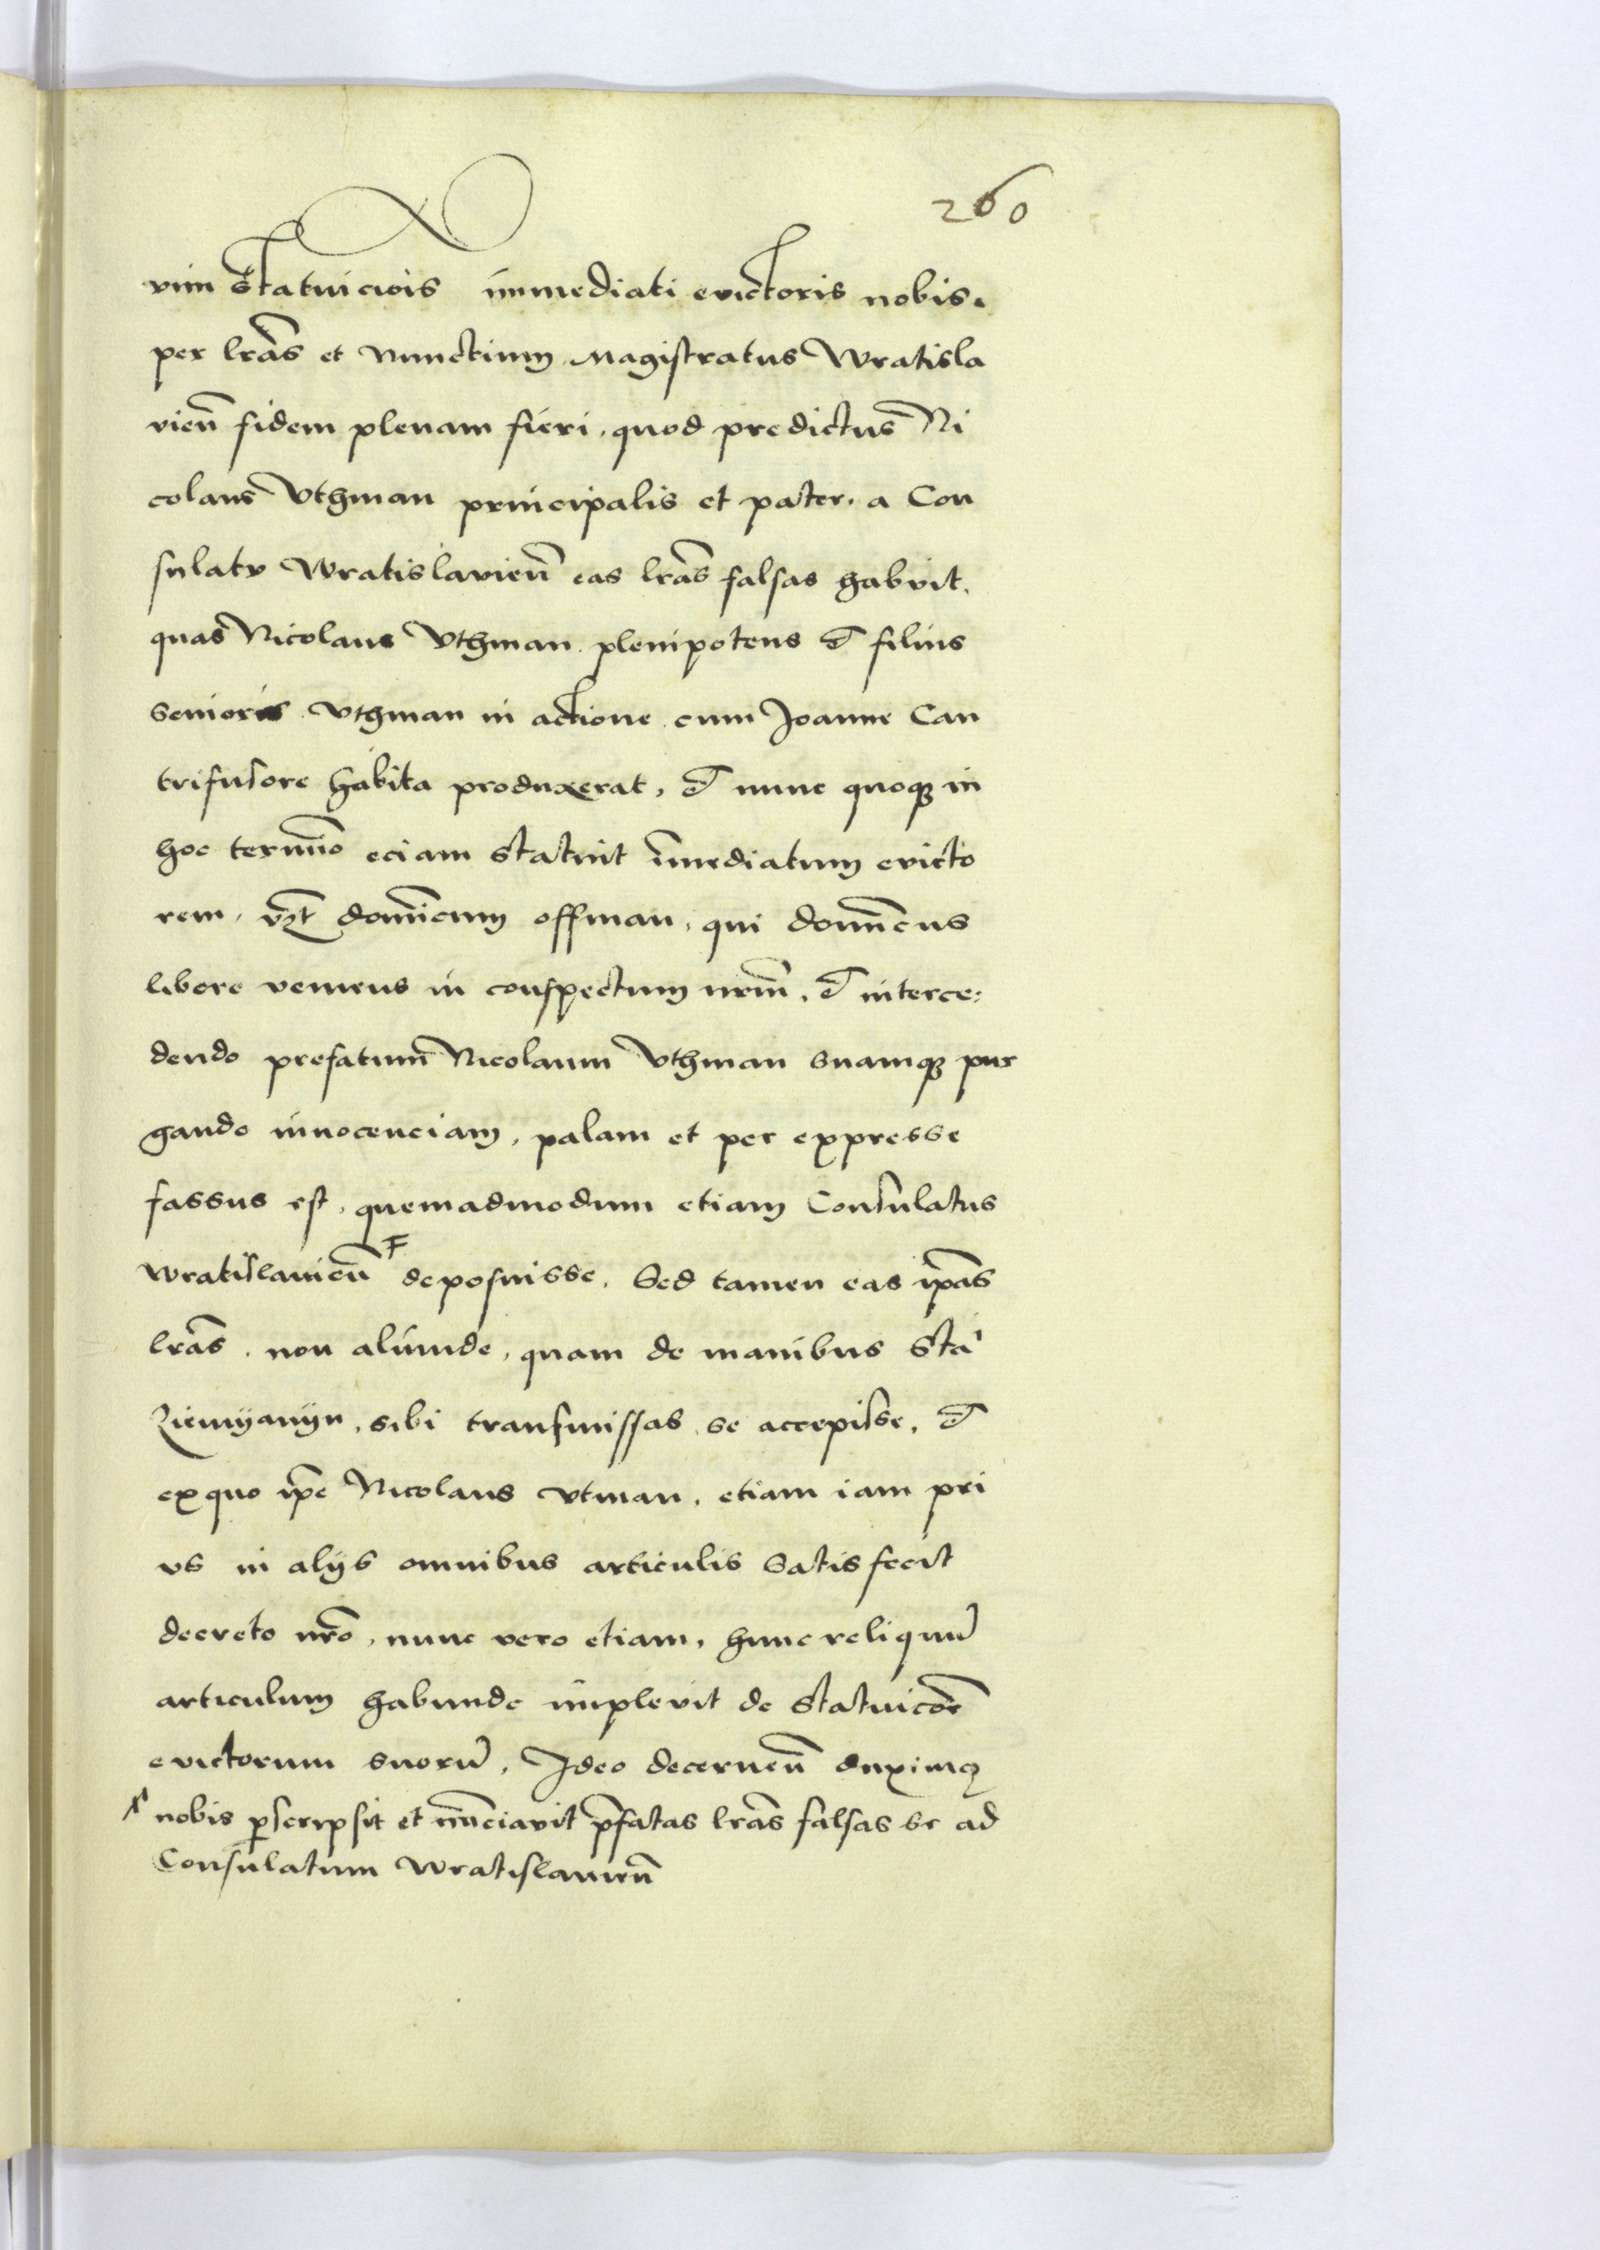 260
vim statuicōis immediati evictoris nobis.
per lrās et nunctium Magistratus Wratisla
vieñ fidem plenam fieri, quod predictus Ni
colaus Vthman principalis et pater. a Con
sulatu Wratislavieñ eas lrās falsas habuit.
quas Nicolaus Vthman plenipotens & filius
senioris Vthman in actione cum Joanne Can
trifusore habita produxerat, & nunc quoqz in
hoc termīno eciam statuit īmediatum evicto
rem, vzt domīcum offman, qui domīcus
libere veniens in conspectum nrm̄, & interce:
dendo prefatum Nicolaum Vthman suamqz pur
gando innocenciam, palam et per expresse
fassus est, quemadmodum etiam Consulatus
Wratislavieñ ᚋ deposuisse, Sed tamen eas ip̄as
lrās, non aliunde, quam de manibus Sta
Ziemÿanÿn, sibi transmissas se accepisse, &
ex quo ip̄e Nicolaus Vtman, etiam iam pri
us in alijs omnibus articulis satisfecit
decreto nr̄o, nunc vero etiam, hunc reliquū
articulum habunde implevit de statuicōe
evictorum suorū, Ideo decerneñ duximus
nobis p̱scripsit et nūnciavit p̄fatas lrās falsas se ad
Consulatum Wratislavieñ